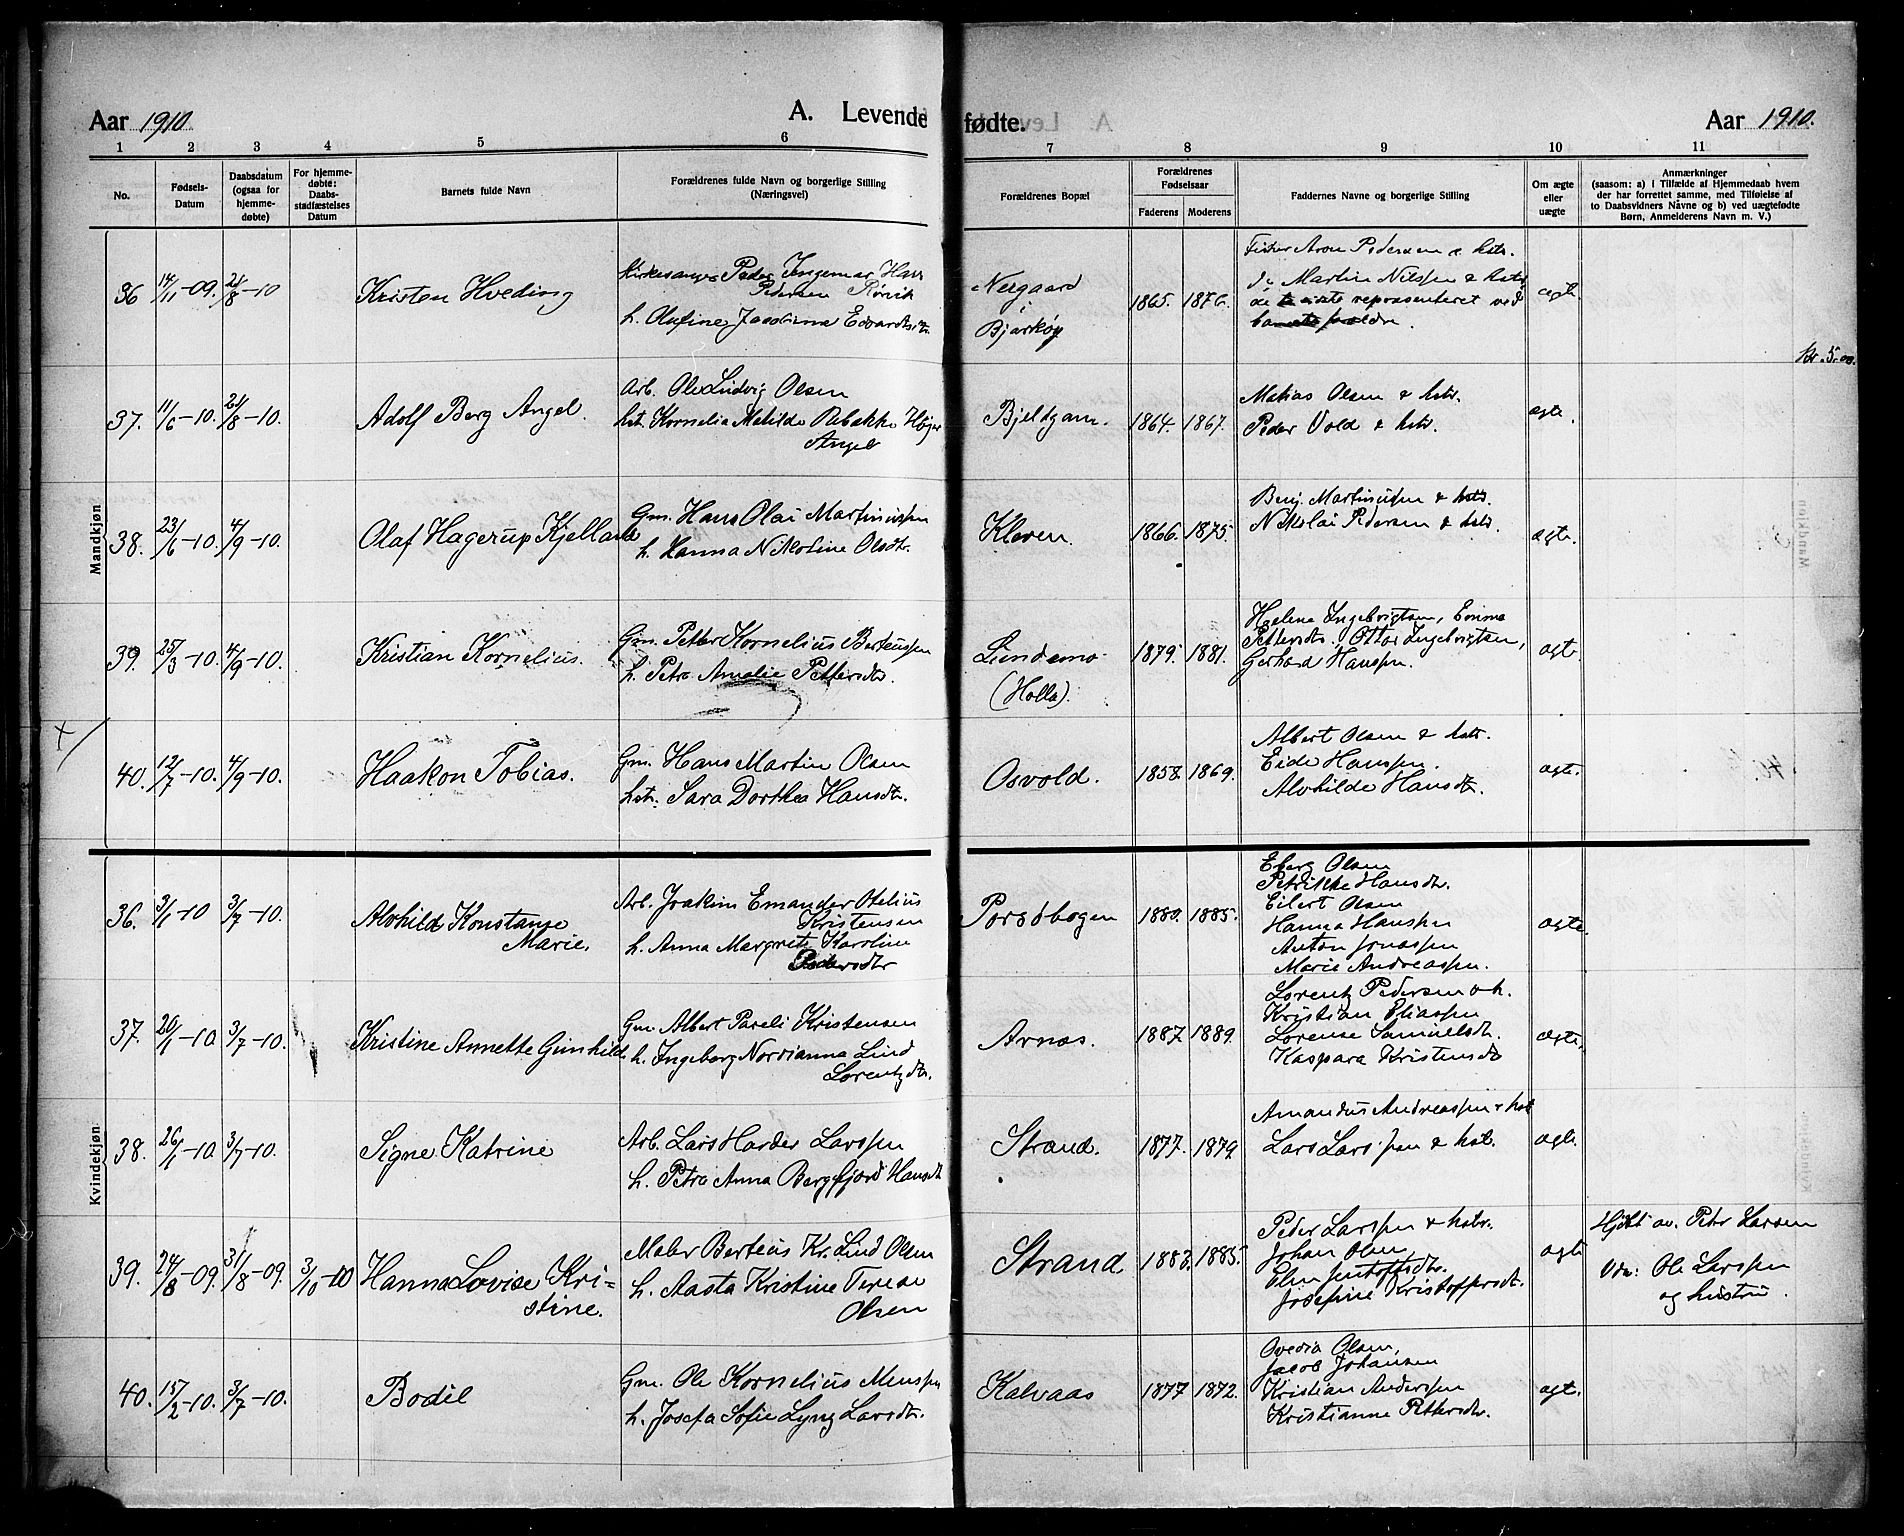 Aar 1910.
A. Levende fødte.
Aar 1910.
1 2 3 4 5 6 7 8 9 10 11
No.
Fødsels-Datum
Daabsdatum (ogsaa for hjemme-døbte)
For hjemme-døbte: Daabs-stadfæstelses Datum
Barnets fulde Navn
Forældrenes fulde Navn og borgerlige Stilling (Næringsvei)
Forældrenes Bopæl
Forældrenes Fødselsaar
Faderens Moderens
Faddernes Navne og borgerlige Stilling
Om ægte eller uægte
Anmærkninger
(saasom: a) i Tilfælde af Hjemmedaab hvem
der har forrettet samme, med Tilføielse af
to Daabsvidners Navne og b) ved uægtefødte
Børn, Anmelderens Navn m. V.)
Mandkjøn
36 14/11-09. 21/8-10
Kristen Hveding
Kirkesanger Peder Ingemar Hav
Pedersen Rørvik
h. Olufine Jacobine Edvardts
Nergaard
i
Bjarkøy
1865. 1876.
Fisker Aron Pedersen & hstr.
do Martin Nilssen & hstr
repræsenteret ved
forældre.
ægte
Kr. 5.00.
37. 11/6-10. 21/8-10.
Adolf Berg Angel.
Arb. Ole Ludvig Olsen
hst. Kornelia Matilde Rebekke Høyer
Angel
Bjeldgam.
1864. 1867.
Matias Olsen & hstr.
Peder Vold & hstr.
ægte.
38. 23/6-10. 4/9-10.
Olaf Hagerup Kjelland
Gm. Hans Olai Martinussen
h. Hanna Nikoline Olsdtr.
Kleven.
1866. 1875.
Benj. Martinussen & hstr.
Nikolai Pedersen & hstr.
ægte.
39. 25/3-10. 4/9-10.
Kristian Kornelius.
Gm. Petter Kornelius Berteussen
h. Petra Amalie Pettersdtr.
Lundemo
(Holla).
1879. 1881.
Helene Ingebrigtsen, Emma
Pettersdtr. Ottar Ingebrigtsen,
Gerhard Hanssen.
ægte
40. 12/7-10. 4/9-10.
Haakon Tobias.
Gm. Hans Martin Olsen
hstr. Sara Dorthea Hansdtr.
Osvold.
1858. 1869.
Albert Olsen & hstr.
Eide Hanssen.
Alvhilde Hansdtr.
ægte.
Kvindekjøn
36. 3/1-10 3/7-10.
Alvhild Konstanse
Marie.
Arb. Joakim Emander Otelius
Kristensen
h. Anna Margrete Karoline
Pedersdtr
Porsøbogen
1880. 1885.
Eberg Olsen
Petrikke Hansdtr.
Eilert Olsen
Hanna Hanssen
Anton Jonassen
Marie Andreassen.
ægte.
37. 20/1-10 3/7-10.
Kristine Annette Gunhild
Gm. Albert Pareli Kristensen
h. Ingeborg Nordianna Lind
Lorentzdtr.
Arnæs.
1887 1889.
Lorentz Pedersen o h.
Kristian Eliassen
Lorense Samuelsdtr.
Kaspara Kristensdtr
ægte.
38. 26/1-10 3/7-10.
Signe Katrine
Arb. Lars Harder Larssen
h. Petra Anna Bergfjord Hansdtr
Strand.
1877. 1879
Amandus Andreassen & hst
Lars Larssen & hstr.
ægte.
39. 24/8-09. 31/8-09. 3/10-10
Hanna Lovise Kri-
stine.
Maler Berteus Kr. Lind Olsen
h. Aasta Kristine Terese
Olsen
Strand
1883. 1885.
Peder Larssen & hstr.
Johan Olsen
Elen Jentoftsdtr.
Josefine Kristoffersdtr.
ægte
Hjdbt av. Petr Larsen
Vdn: Ole Larssen
og hustru.
40. 15/2-10. 3/7-10.
Bodil
Gm. Ole Kornelius Monssen
h. Josefa Sofie Lyng Larsdtr.
Kalvaas
1877 1872.
Ovedia Olsen,
Jacob Johansen
Kristian Anderssen
Kristianne Pettersdtr.
ægt.